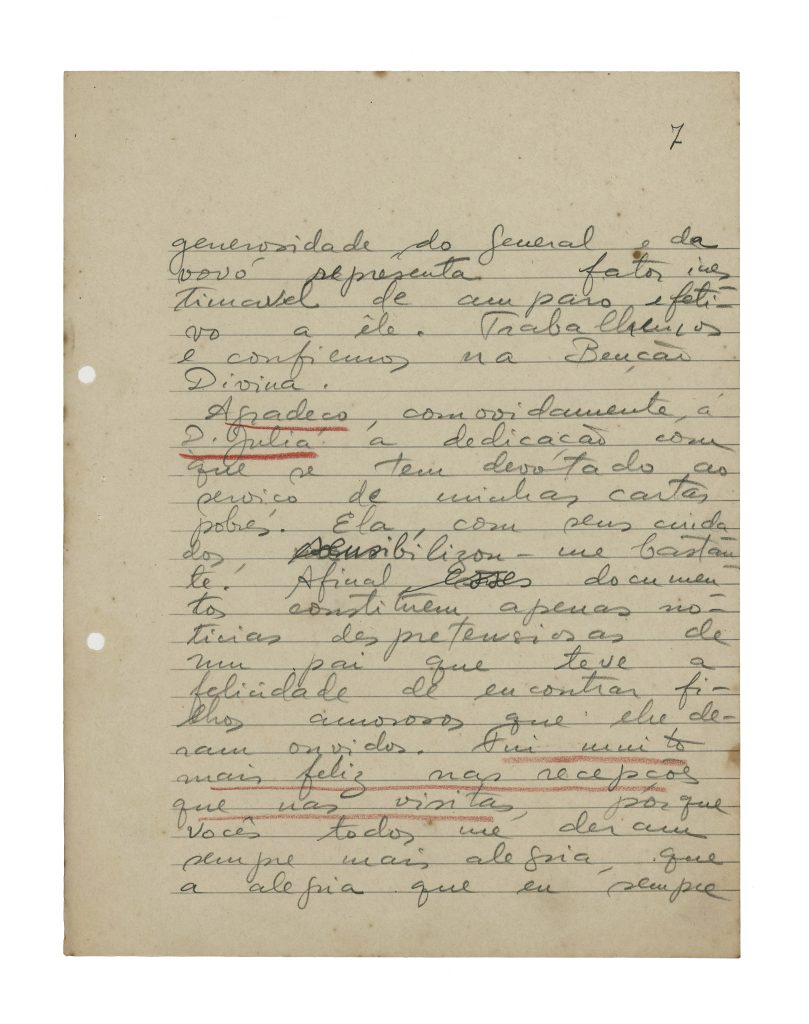 7
generosidade do General e da
vovó representa fator ines
timavel de amparo efeti-
vo a êle. Trabalhemos
e confiemos na Benção
Divina.
Agradeço, comovidamente, á
D. Julia a dedicação com
que se tem devotado ao
serviço de minhas cartas
pobres. Ela, com seus cuida
dos, sensibilizou-me bastan
te. Afinal, esses documen
tos constituem apenas no-
ticias despretensiosas de
um pai que teve a
felicidade de encontrar fi-
lhos amorosos que lhe de-
ram ouvidos. Fui muito
mais feliz nas recepções
que nas visitas, porque
vocês todos me deram
sempre mais alegria que
a alegria que eu sempre